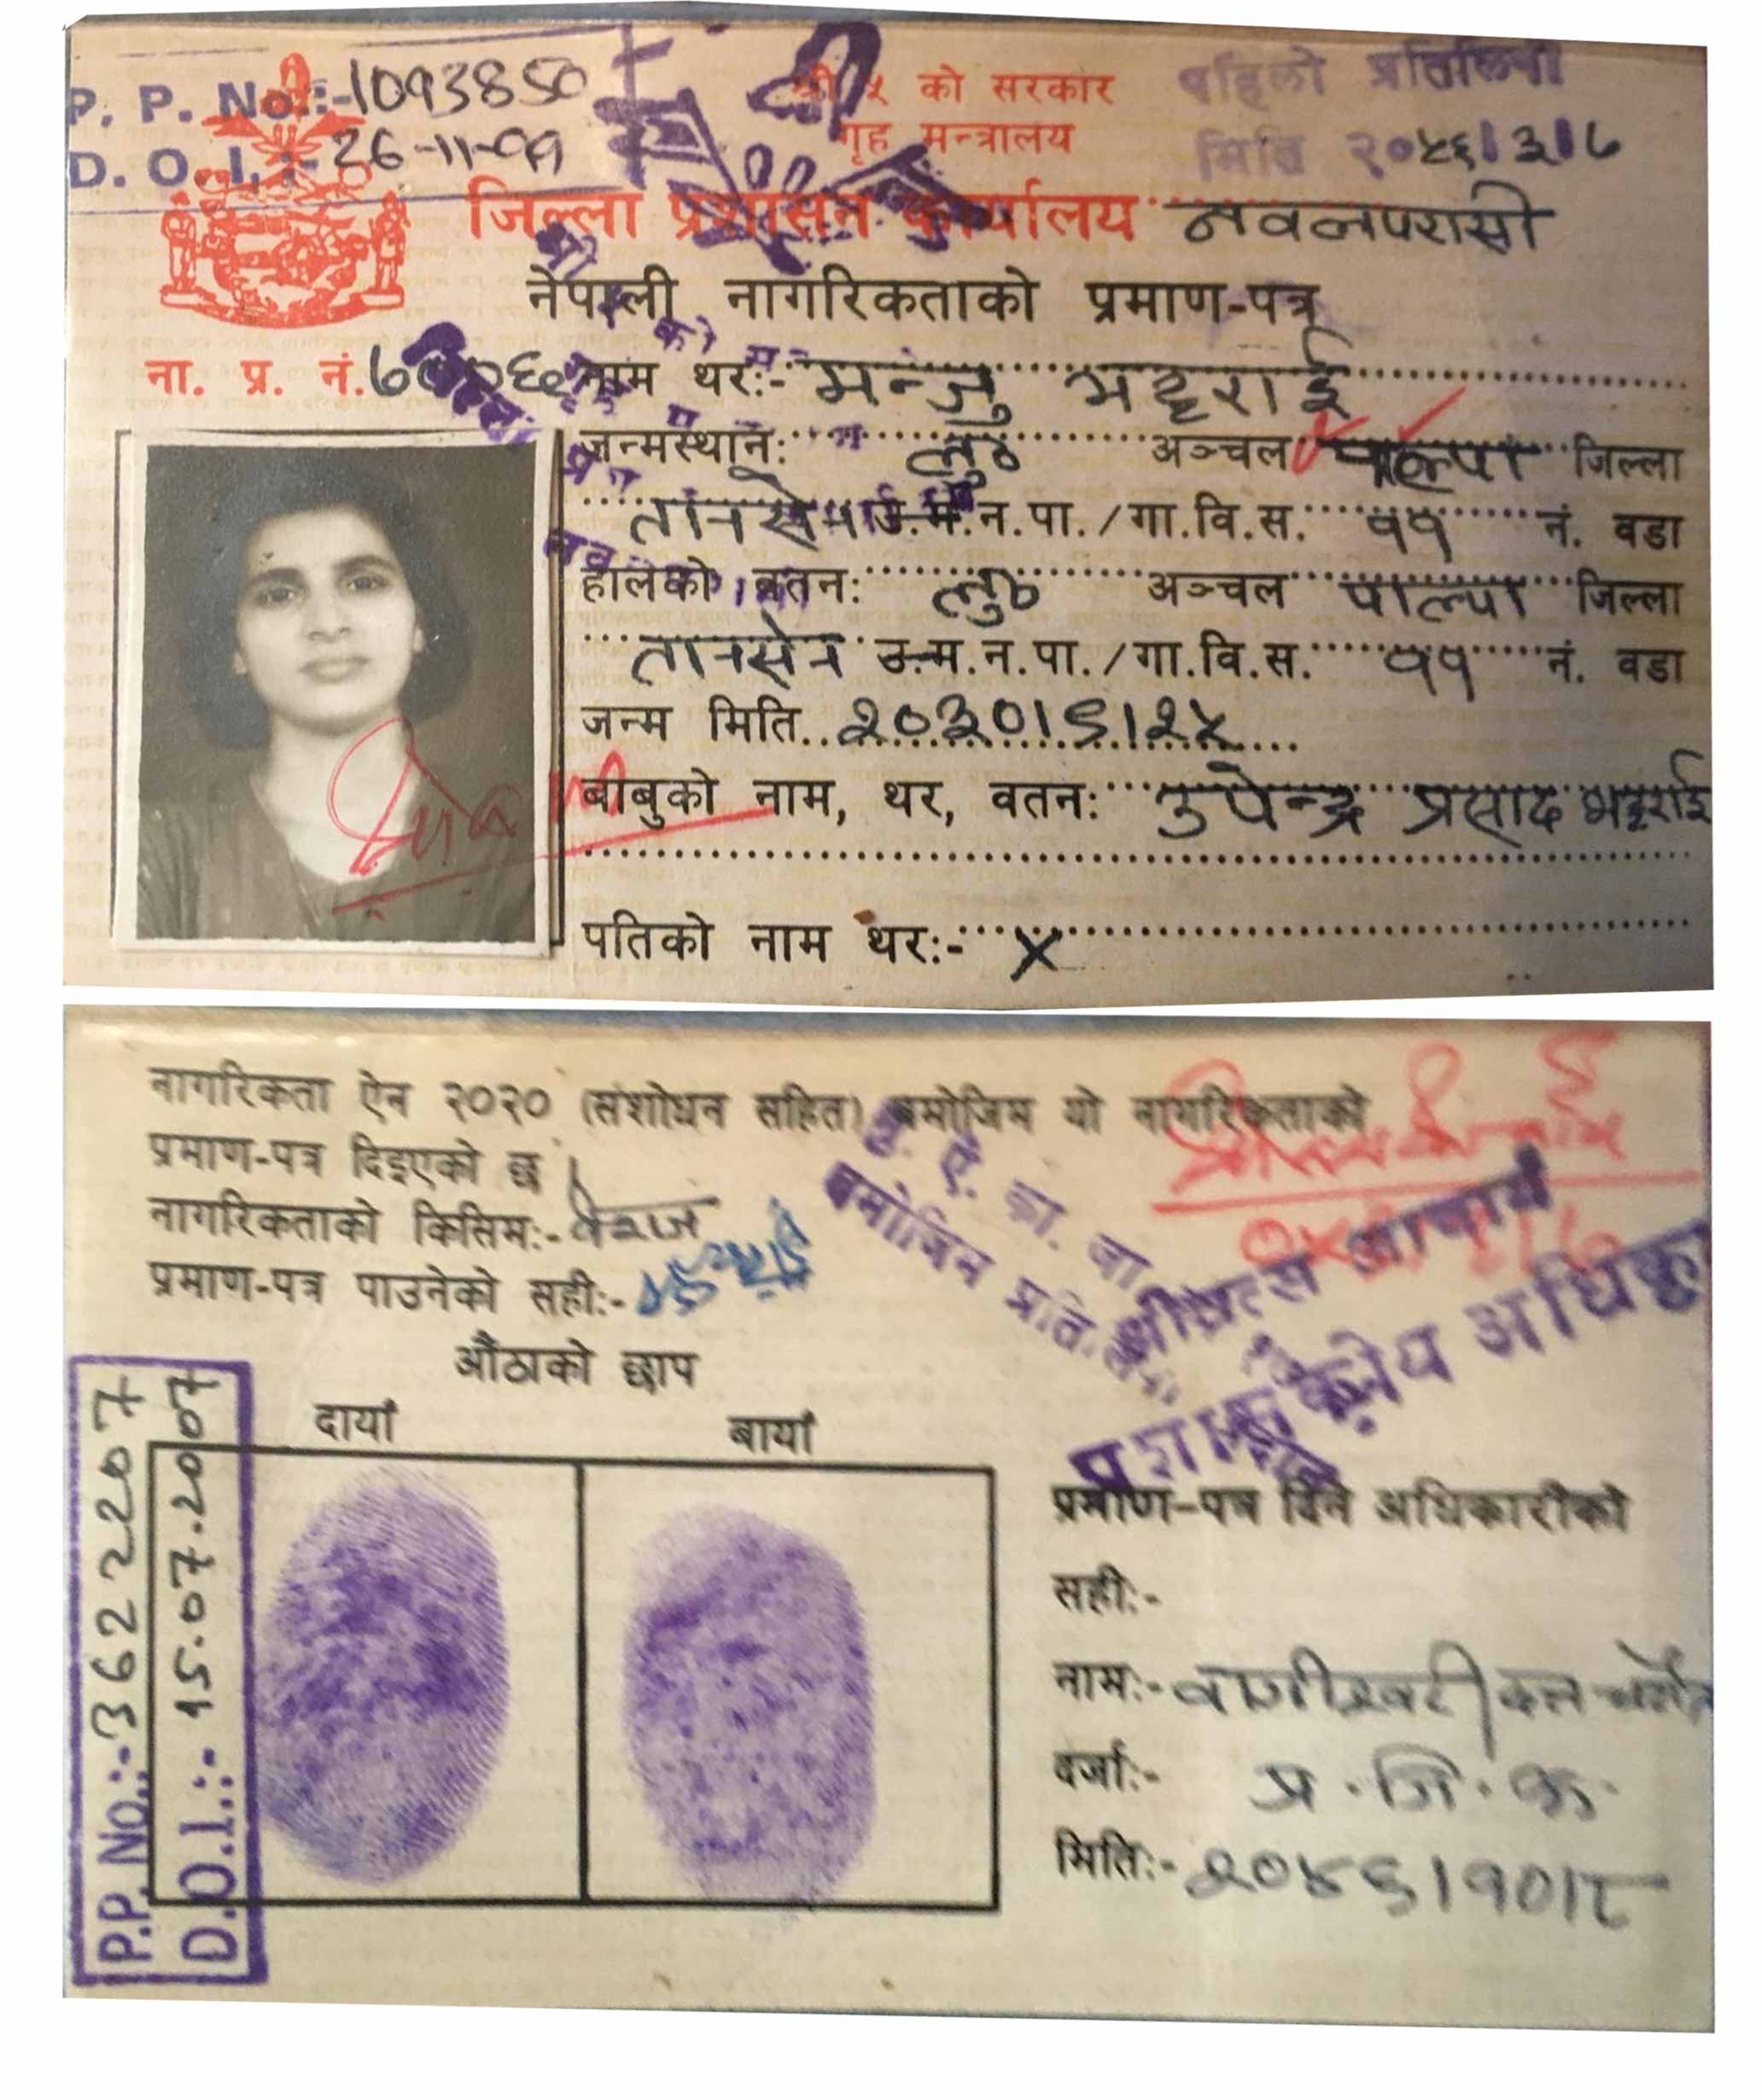 P. P. No.:-1093850
D. O. I. :- 26-11-99
श्री ५ को सरकार
गृह मन्त्रालय
पहिलो प्रतिलिपी
मिति २०५६।३।७
जिल्ला प्रशासन कार्यालय नवलपरासी
नेपाली नागरिकताको प्रमाण-पत्र
ना. प्र. नं.
नाम थर:- मन्जु भट्टराई
जन्मस्थान: लुं० अञ्चल पाल्पा जिल्ला
तानसेन उ.म.न.पा./गा.वि.स. ११ नं. वडा
हालको वतन: लुं० अञ्चल पाल्पा जिल्ला
तानसेन उ.म.न.पा./गा.वि.स. ११ नं. वडा
जन्म मिति २०३०।६।२५
बाबुको नाम, थर, वतन: उपेन्द्र प्रसाद भट्टराई
पतिको नाम थर:- X
नागरिकता ऐन २०२० (संशोधन सहित) बमोजिम यो नागरिकताको
प्रमाण-पत्र दिइएको छ।
नागरिकताको किसिम:- वंशज
प्रमाण-पत्र पाउनेको सही:-
मु. ऐ. का. वा.
बमोजिम प्रति.
श्रीवत्स आचार्य
प्रशासकीय अधिकृत
औंठाको छाप
दायाँ बायाँ
P.P. No.:- 3622207
D.O.I.:- 15.07.2007
प्रमाण-पत्र दिने अधिकारीको
सही:-
नाम:-
दर्जा:- प्र. जि. अ.
मिति:- २०४६।१०।८